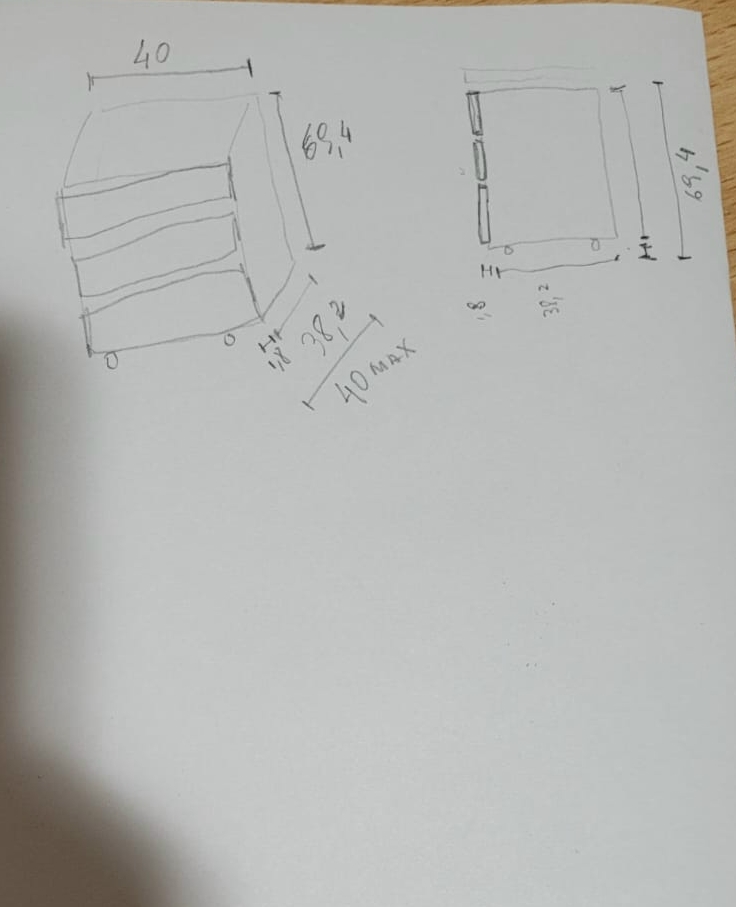 40
69,4
1,8
38,2
40 MAX
69,4
1,8
38,2